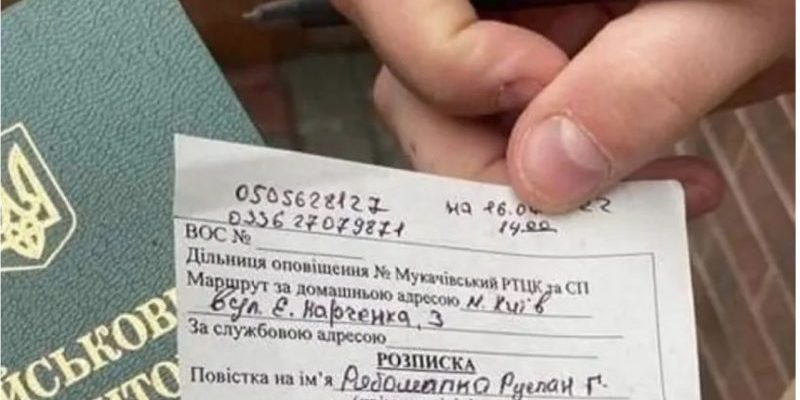 ІЙСЬКОВИ
0505628127
033627079871
на 16.0 22
14.00
ВОС №
Дільниця оповіщення № Мукачівський РТЦК та СП
Маршрут за домашньою адресою м. Київ
вул. Є. Харченка, 3
За службовою адресою
РОЗПИСКА
Повістка на ім'я Руслан Г.